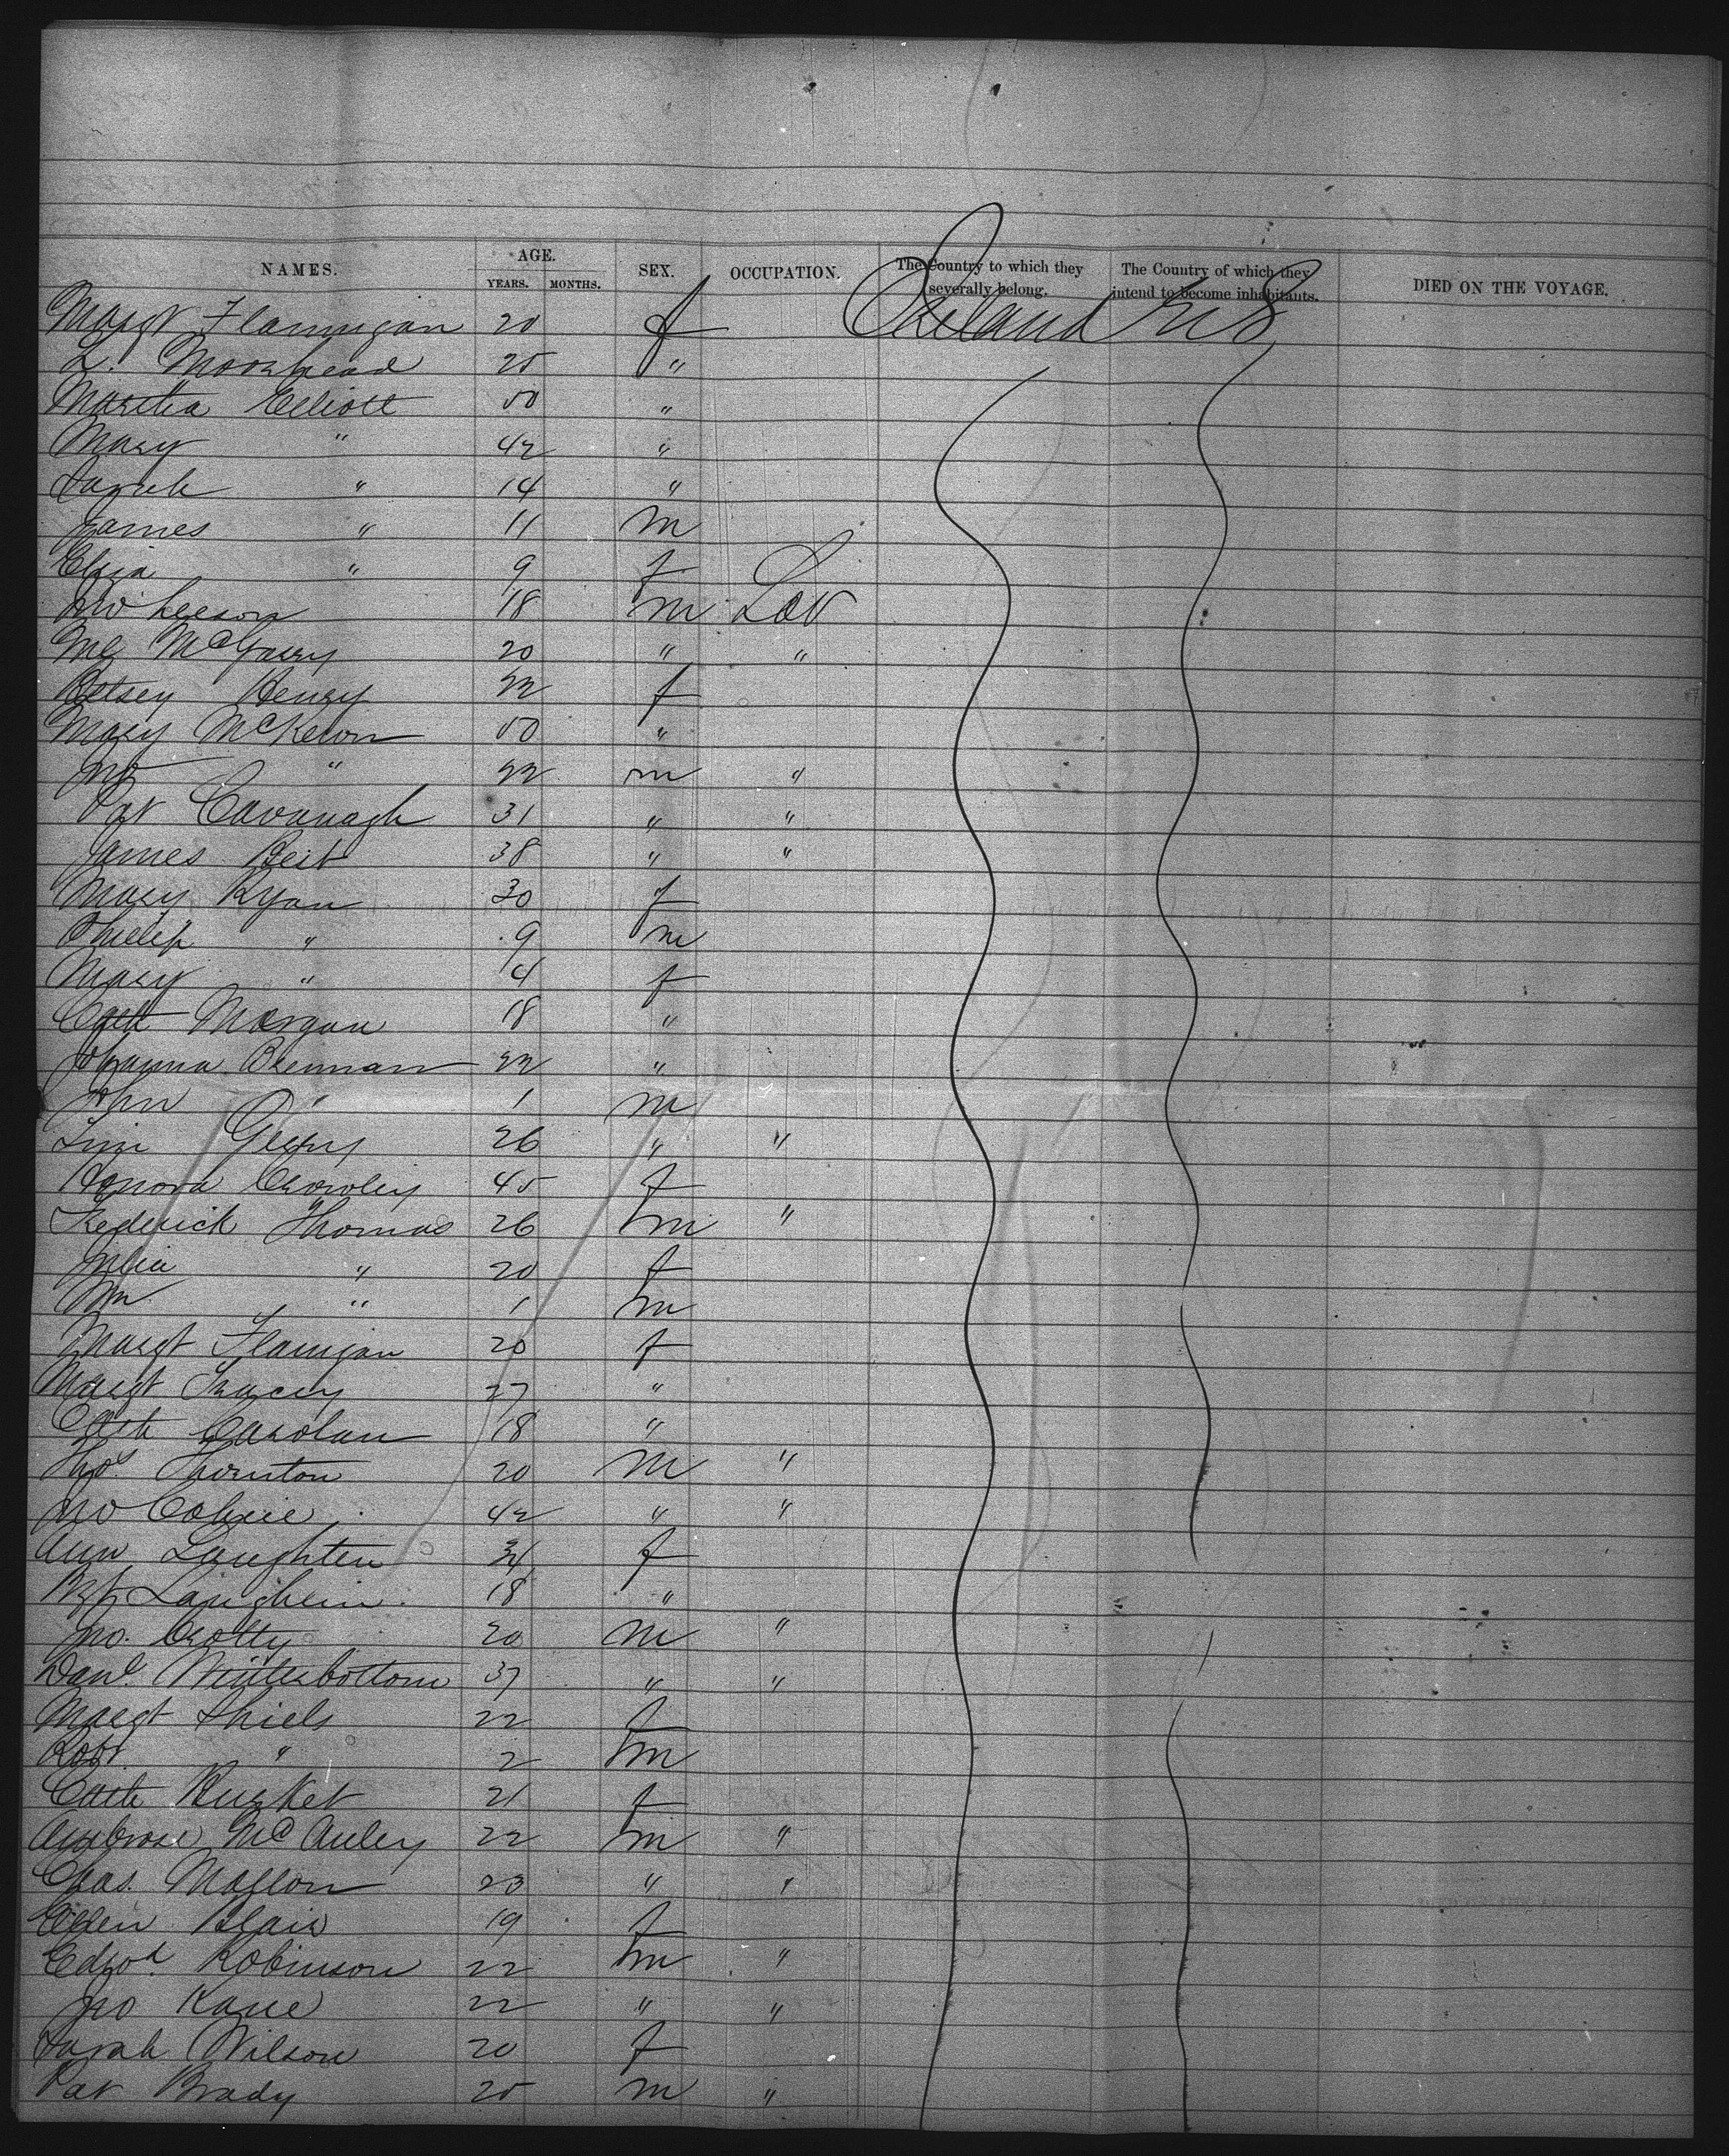 NAMES. AGE. YEARS. MONTHS. SEX. OCCUPATION. The Country to which they severally belong. The Country of which they intend to become inhabitants. DIED ON THE VOYAGE.
Margt Flannigan 20 f Ireland U S
L. Moorhead 25 "
Martha Elliott 50 "
Mary " 42 "
Sarah " 14 "
James " 11 m
Eliza " 9 f
Jno Leeson 18 m Lab
Ml McGarry 20 " "
Betsey Henry 22 f
Mary McKeown 50 "
Jno " 22 m "
Pat Cavanagh 31 " "
James Beit 38 " "
Mary Ryan 30 f
Phillip " 9 m
Mary " 4 f
Cath Morgan 18 "
Johanna Brennan 22 "
John " 1 m
Tim 26 " "
Honora Crowley 45 f
Frederick Thomas 26 m "
Julia " 20 f
Wm " 1 m
Margt Flanigan 20 f
Margt Tracey 27 "
Cath Carolan 18 "
Thos Thornton 20 m "
Jno 42 " "
Ann Laughten 34 f
18 "
Jno. Crotty 20 m "
Danl. Winterbottom 37 " "
Margt Shiels 22 f
Robt. " 2 m
Cath Burket 21 f
Ambrose McAuley 22 m "
Chas. Mallon 23 " "
Ellen Blair 19 f
Edwd. Robinson 22 m "
Jno Kane 22 " "
Sarah Wilson 20 f
Pat Brady 25 m "